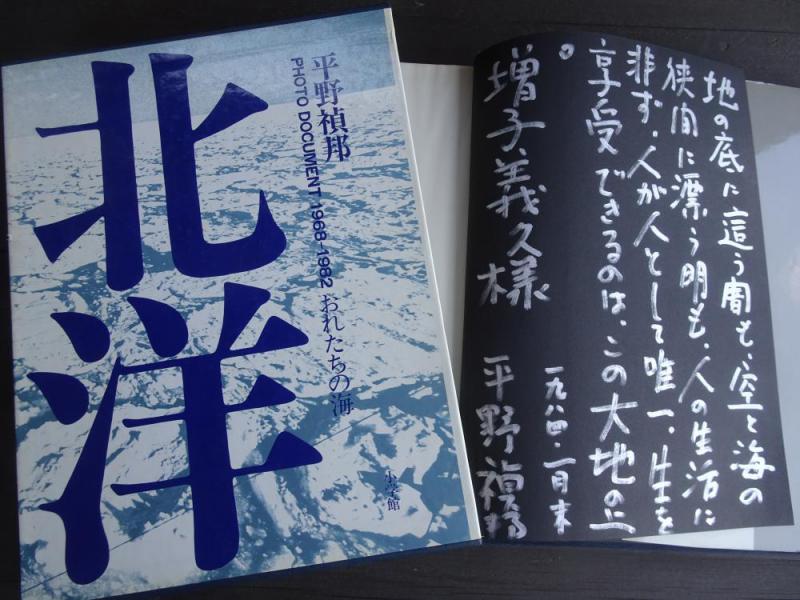 北洋
平野禎邦
PHOTO DOCUMENT 1968-1982 おれたちの海
小学館
地の底に這う闇も、空と海の
狭間に漂う明も、人の生活に
非ず。人が人として唯一、生を
享受できるのは、この大地の上
。
増子義久様
一九八四・一月末
平野禎邦